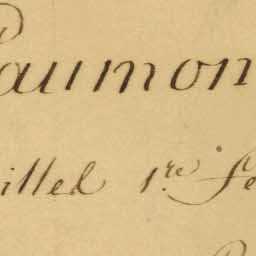 Paumon
illed 1re fe